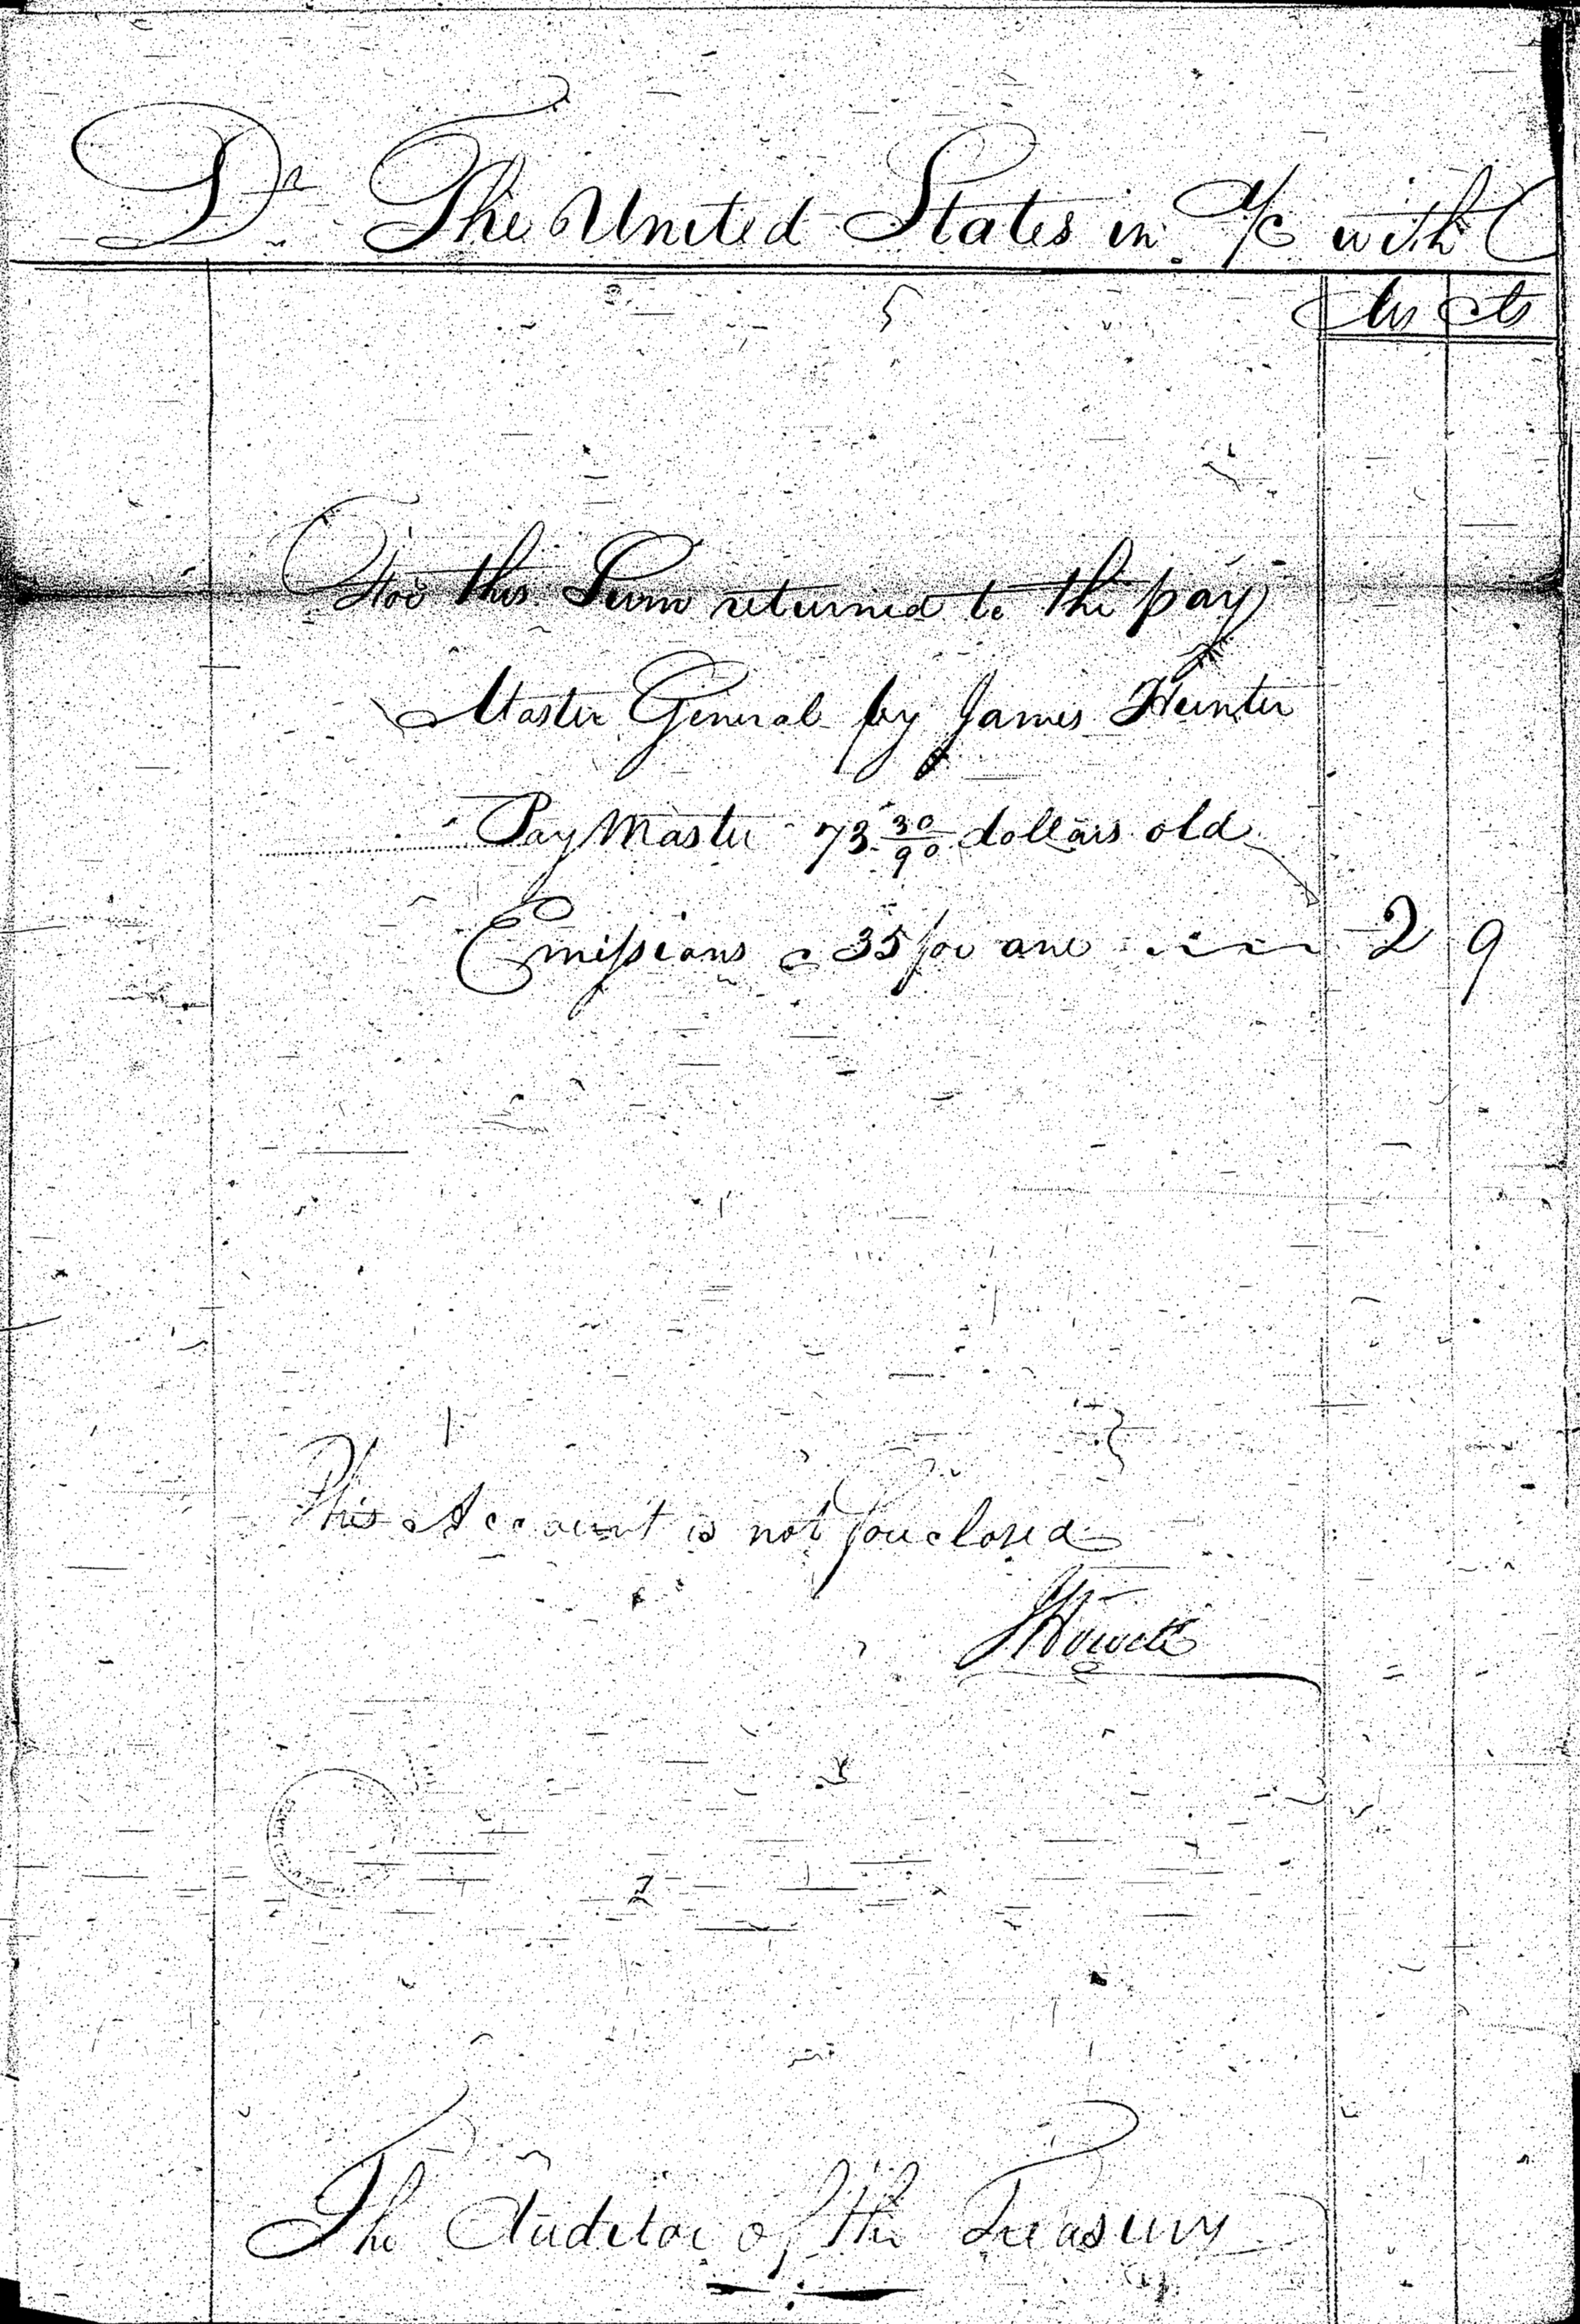 Dr The United States in a/c with
Dlls Cts
For this Sum returned to the pay
Master General by James Hunter
Pay Master 73 30/90 dollars old
Emissions a 35 for one 2 9
This Account is not foreclosed
JHowell
The Auditor of the Treasury